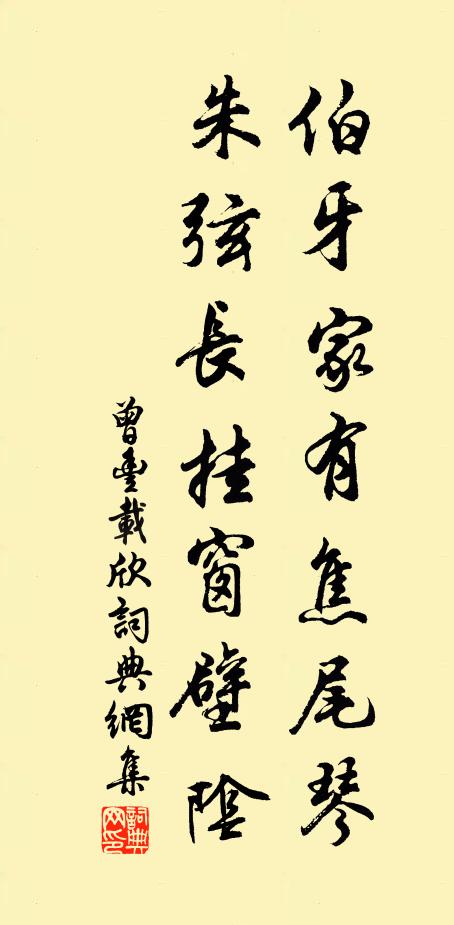 伯牙家有焦尾琴
朱弦長挂窗壁陰
曾豐載欣詞典網集
詞典網印